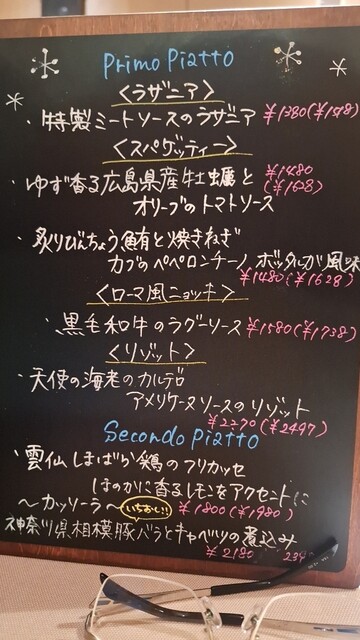 Primo Piatto
<ラザニア>
・特製ミートソースのラザニア ¥1380(¥1518)
<スパゲッティー>
・ゆず香る広島県産牡蠣と ¥1480
(¥1628)
オリーブのトマトソース
・炙りびんちょう鮪と焼きねぎ
カブのペペロンチーノ ボッタルガ風味
¥1480(¥1628)
<ローマ風ニョッキ>
・黒毛和牛のラグーソース ¥1580(¥1738)
<リゾット>
・天使の海老のカルデロ
アメリケーヌソースのリゾット
¥2270(¥2497)
Secondo Piatto
・雲仙しまばら鶏のフリカッセ
ほのかに香るレモンをアクセントに
~カッソーラ~ いちおし!! ¥1800(¥1980)
神奈川県相模豚バラとキャベツの煮込み
¥2180